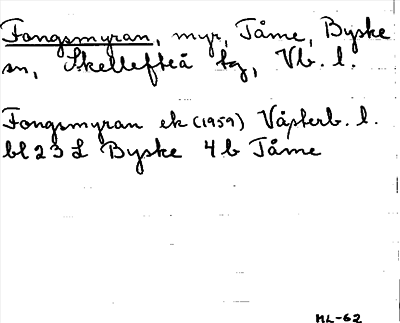 Fongsmyran, myr, Tåme, Byske
sn, Skellefteå tg, Vb. l.
Fongsmyran ek (1959) Västerb. l.
bl 23 L Byske 4b Tåme
ML-62